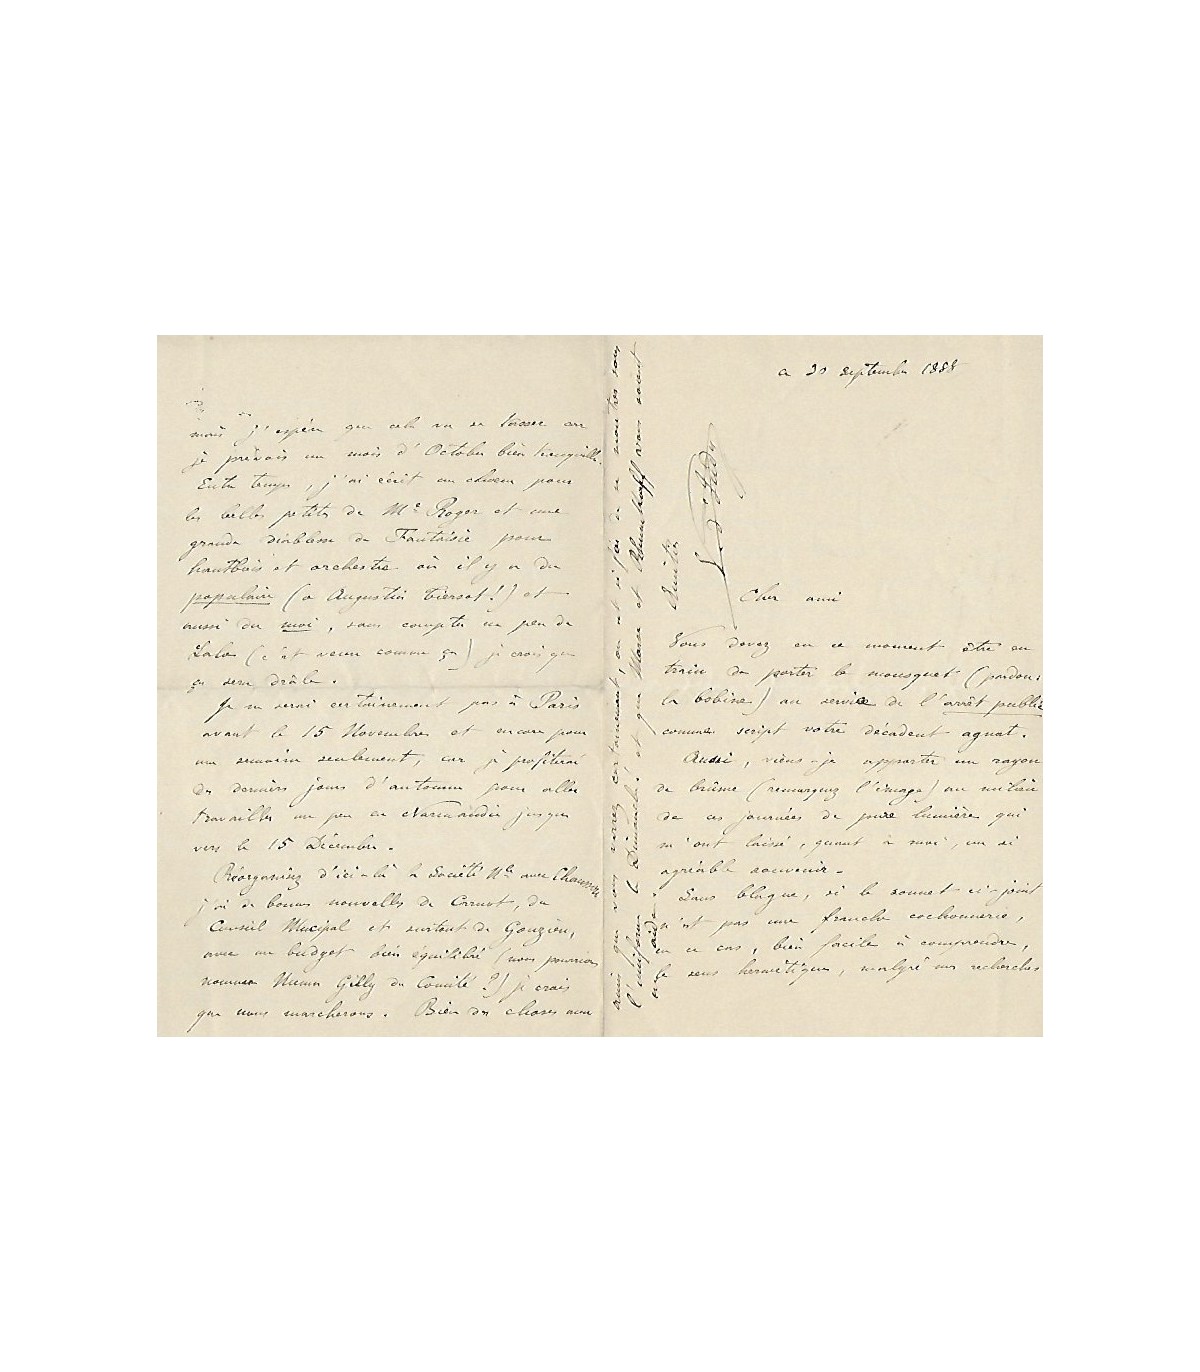 ce 30 septembre 1888
Cher ami
Vous devez en ce moment être en
train de porter le mousquet (pardon:
la bobine) au service de l'arrêt public
comme script votre décadent
Aussi, viens-je apporter un rayon
de brûme (remarquez l'image) au milieu
de ces journées de pure lumière qui
m'ont laissé, quant à moi, un si
agréable souvenir.
Sans blague, si le sonnet ci-joint
n'est pas une franche cochonnerie,
en ce cas, bien facile à comprendre,
le sens hermétique, malgré mes recherches
mais j'espère que cela va se tasser car
je prévois un mois d'Octobre bien tranquille.
Entre temps, j'ai écrit un chœur pour
les belles petites de Me Roger et une
grande diablesse de Fantaisie pour
hautbois et orchestre où il y a du
populaire (o Augustin Tiersot!) et
aussi du moi, sans compter un peu de
Lalo (c'est venu comme ça) je crois que
ça sera drôle.
Je ne serai certainement pas à Paris
avant le 15 Novembre et encore pour
une semaine seulement, car je profiterai
des derniers jours d'automne pour aller
travailler un peu en Normandie jusque
vers le 15 Décembre.
Réorganisez d'ici-là la Société Nle avec Chausson
j'ai de bonnes nouvelles de Carnot, du
Conseil Mucipal et surtout de Gouzien,
avec un budget bien équilibré (nous pourrions
nommer Numa Gilly du Comité?) je crois
que nous marcherons. Bien des choses aux
amis que vous verrez certainement, car
l'uniforme le Dimanche! et que
Amitiés